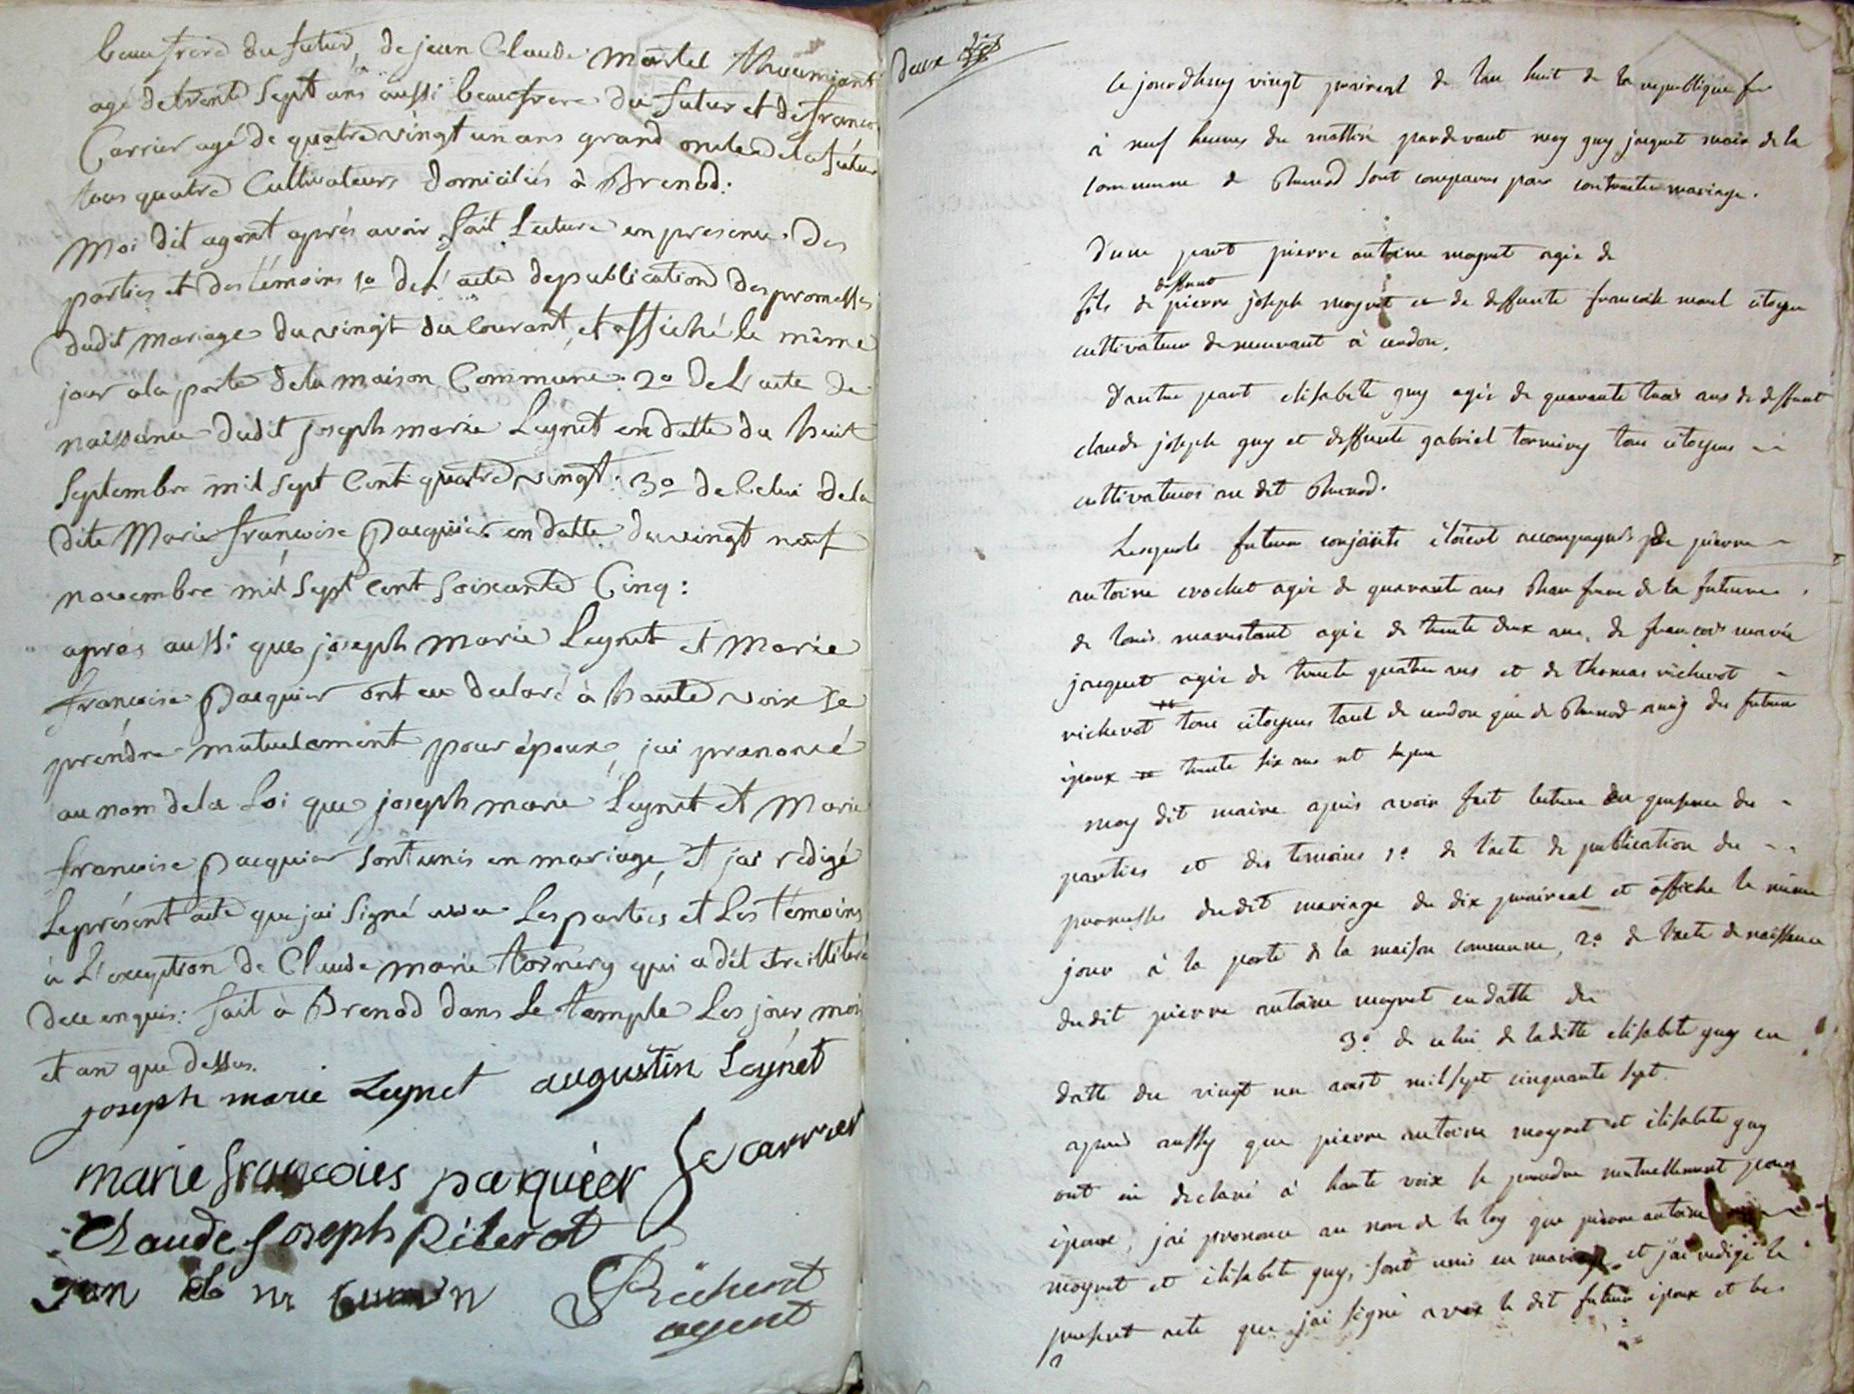 beaufrere du futur, de jean Claude martel
agé de trente Sept ans aussi beaufrere du futur et de francois
Carrier agé de quatre vingt un ans grand oncle de la future
tous quatre Cultivateurs domiciliés à Brenod:
Moi dit agent aprés avoir fait Lecture en presence des
parties et des témoins 1º de L'acte de publication des promesses
dudit mariage du vingt du Courant, et affiché le même
jour a la porte de la maison Commune. 2º de L'acte de
naissance dudit joseph marie Leynet en datte du huit
Septembre mil sept Cent quatre vingt: 3º de Celui de la
dite Marie françoise Pacquier en datte du vingt neuf
novembre mil Sept Cent Soixante Cinq:
aprés aussi que joseph marie Leynet et Marie
françoise Pacquier ont eu declaré à haute voix Se
prendre mutuelement pour époux, jai prononcé
au nom de la Loi que joseph marie Leynet et Marie
francoise Pacquier Sont unis en mariage, et jai rédigé
Le présent acte que jai Signé avec Les parties et Les témoins
à L'exception de Claude marie tornery qui a dit etre illiteré
de ce enquis: fait à Brenod dans Le temple Les jour, mois
et an que dessus.
joseph marie Leynet augustin Leynet
marie francoies pacquier carrier
Claude Joseph
Richerot
agent
deux
Ce jourdhuy vingt prairéal de lan huit de la republique
à neuf heures du mattin pardevant moy guy jacquet maire de la
Commune de Brenod sont comparus pour contracter mariage.
D'une part pierre antoine moynet agée de
deffunt
fils de pierre joseph moynet et de deffunte francoise morel citoyen
cultivateur demeurant à cerdon,
D'autre part elisabete guy agée de quarante trois ans de deffunt
claude joseph guy et deffunte gabriel tornery tous citoyens
cultivateurs au dit Brenod.
Lesquels futeur conjoints étoient accompagnés de pierre
antoine crochet agée de quarante ans Beau frere de la future
de louis agée de trente deux ans, de francois marie
jacquet agée de trente quatre ans et de thomas richerot
richerot tous citoyens tant de cerdon que de Brenod amij du futeur
époux trente six ans
moy dit maire aprés avoir fait lecture en presence des
parties et des temoins 1º de l'acte de publication des
promesses dudit mariage du dix prairéal et affiché le même
jour à la porte de la maison commune, 2º de l'acte de naissance
dudit pierre antoine moynet en datte du
3º de celui de laditte elisabete guy en
datte du vingt un aoust mil sept cinquante sept.
aprés aussy que pierre antoine moynet et elisabete guy
ont eu declaré à haute voix se prendre mutuellement pour
époux, jai prononcé au nom de la loy que pierre antoine
moynet et elisabete guy, sont unis en mariage et j'ai redigé le
present acte que jai signé avec le dit futeur époux et les